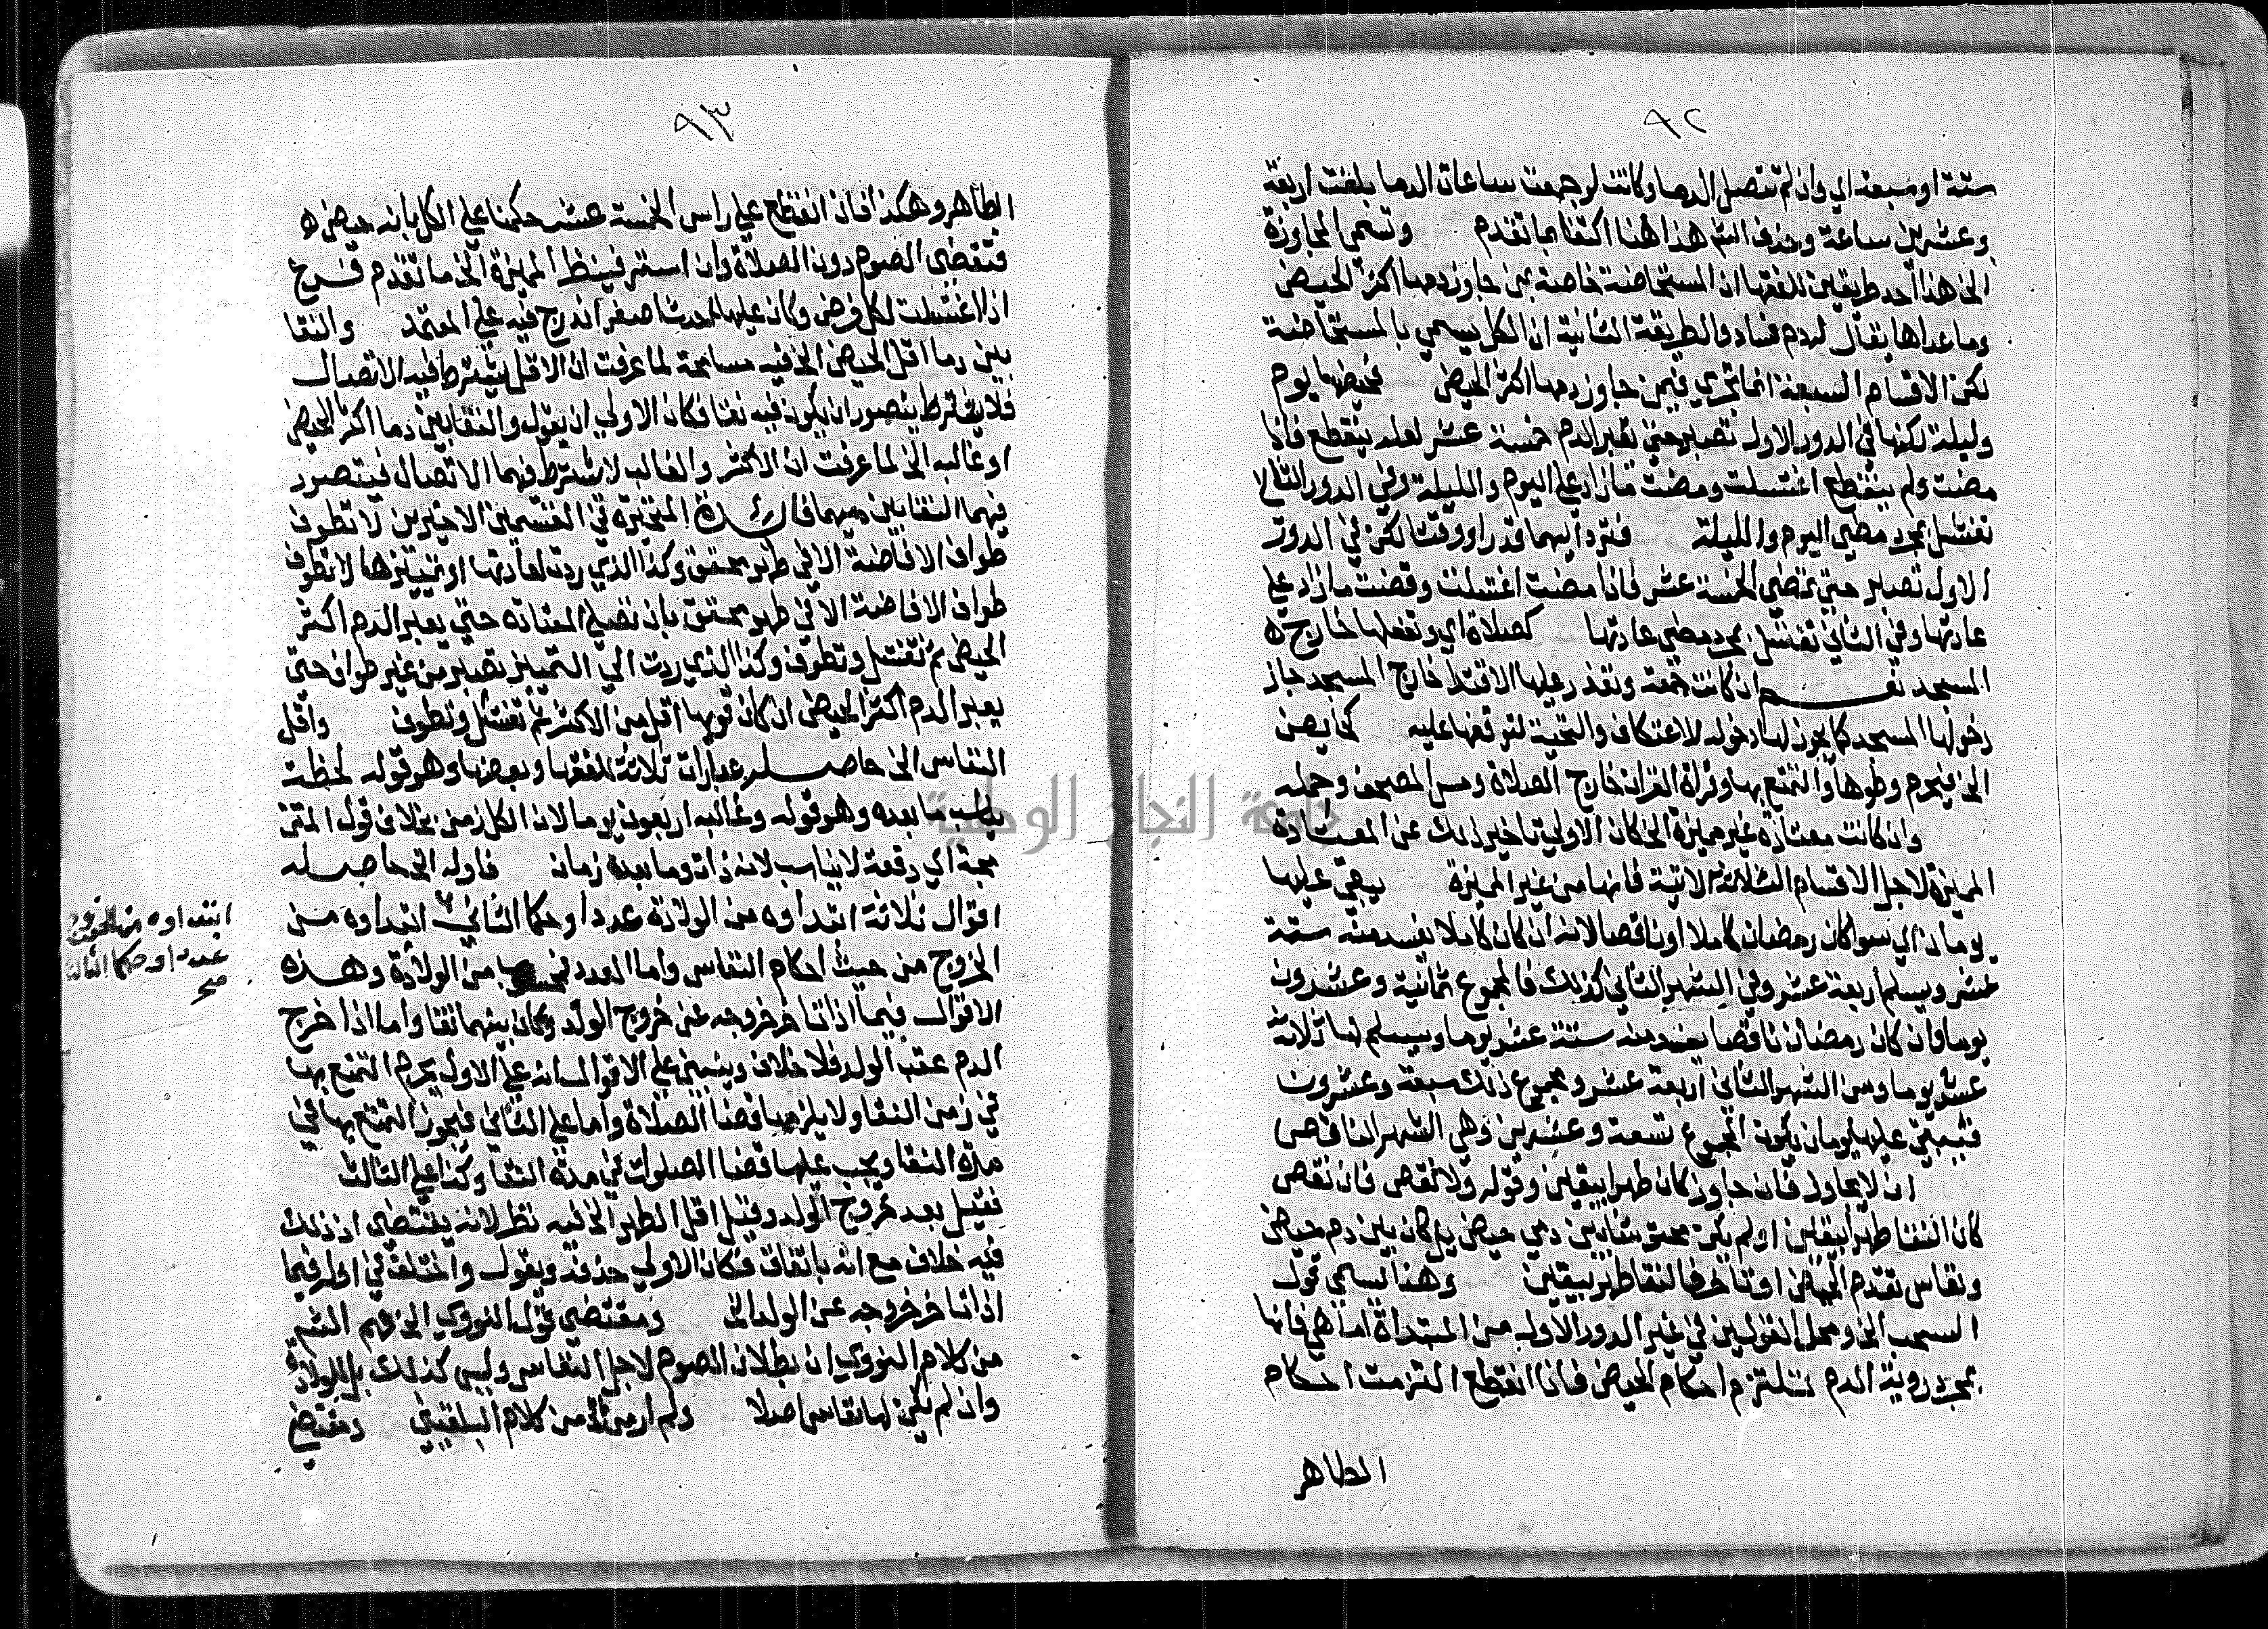 ٩٢
ستة او سبعة اي وان لم تتصل الدما وكانت لو جمعت ساعات الدما بلغت اربعة
وعشرين ساعة وحذف الشم هذا هنا اكتفا بما تقدم وتسمى المجاوزة
الخ هذا احد طريقين للفقها ان المستحاضة خاصة بمن جاوز دمها اكثر الحيض
وما عداها يقال له دم فساد والطريقة الثانية ان الكل يسمى بالمستحاضة
لكن الاقسام السبعة انما تجري فيمن جاوز دمها اكثر الحيض فحيضها يوم
وليلة لكنها في الدور الاول تصبر حتى تعبر الدم خمسة عشر لعله ينقطع فاذا
مضت ولم ينقطع اغتسلت وقضت ما زاد على اليوم والليلة وفي الدور الثاني
تغتسل بمجرد مضي اليوم والليلة فترد اليهما قدرا ووقتا لكن في الدور
الاول تصبر حتى تمضي الخمسة عشر فاذا مضت اغتسلت وقضت ما زاد على
عادتها وفي الثاني تغتسل بمجرد مضي عادتها كصلاة اي وتفعلها خارج
المسجد نعم ان كانت جمعة وتعذر عليها الاقتدا خارج المسجد جاز
دخولها المسجد كما يجوز لها دخوله للاعتكاف والتحية لتوقفها عليه كحايض
الخ فيحرم وطوها والتمتع بها وقراة القران خارج الصلاة ومس المصحف وحمله
وان كانت معتادة غير مميزة الخ كان الاولى تاخير ذلك عن المعتادة
المميزة لاجل الاقسام الثلاثة الاتية فانها من غير المميزة يبقى عليها
يومان اي سوا كان رمضان كاملا او ناقصا لانه ان كان كاملا يفسد منه ستة
عشر ويسلم اربعة عشر وفي الشهر الثاني كذلك فالمجموع ثمانية وعشرون
يوما وان كان رمضان ناقصا يفسد منه ستة عشر يوما ويسلم لها ثلاثة
عشر يوما ومن الشهر الثاني اربعة عشر ومجموع ذلك سبعة وعشرون
فيبقى عليها يومان يكون المجموع تسعة وعشرين وهي الشهر الناقص
ان لا يجاوز فان جاوز كان طهرا بيقين وقوله ولا نقص فان نقص
كان النقا طهرا بيقين او لم يكن محتوشا بين دمي حيض بل كان بين دم حيض
ونفاس تقدم الحيض او تاخر فالنقا طهر بيقين وهذا يسمى قول
السحب الخ ومحل القولين في غير الدور الاول من المبتداة اما هي فانها
بمجرد روية الدم تلتزم احكام الحيض فاذا انقطع التزمت احكام
الطاهر
٩٣
الطاهر وهكذا فان انقطع على راس الخمسة عشر حكمنا على الكل بانه حيض
فتقضي الصوم دون الصلاة وان استمر فينظر المميزة الخ ما تقدم فرع
اذا اغتسلت لكل فرض وكان عليها الحدث اصغر اندرج فيه على المعتمد والنقا
بين دما اقل الحيض الخ فيه مسامحة لما عرفت ان الاقل يشترط فيه الاتصال
فلا يتصور ان يكون فيه نقا فكان الاولى ان يقول والنقا بين دما اكثر الحيض
او غالبه الخ لما عرفت ان الاكثر والغالب لا يشترط فيهما الاتصال فيتصور
فيهما النقا بين دميهما فائدة المتحيرة في القسمين الاخيرين لا تطوف
طواف الافاضة الا في طهر محقق وكذا الذي ردت لعادتها او تمييزها لا تطوف
طواف الافاضة الا في طهر محقق بان تصبر المعتادة حتى يعبر الدم اكثر
الحيض ثم تغتسل وتطوف وكذا الذي ردت الى التمييز تصبر من غير طواف حتى
يعبر الدم اكثر الحيض ان كان قويها اقل من الاكثر ثم تغتسل وتطوف واقل
النفاس الخ حاصله عبارات ثلاثة للفقها وبعضها وهو قوله لحظة
يناسب ما بعده وهو قوله وغالبه اربعون يوما لان الكل زمن بخلاف قول المتن
مجة اي دفعة لا يناسب لانه ذات وما بعده زمان فاوله الخ حاصله
اقوال ثلاثة ابتداوه من الولادة عددا وحكما الثاني ابتداوه من
الخروج من حيث احكام النفاس واما العدد فيحسب من الولادة وهذه
الاقوال فيما اذا تاخر خروجه عن خروج الولد وكان بينهما نقا واما اذا خرج
الدم عقب الولد فلا خلاف وينبني على الاقوال انه على الاول يحرم التمتع بها
في زمن النقا ولا يلزمها قضا الصلاة واما على الثاني فيجوز التمتع بها في
مدة النقا ويجب عليها قضا الصلوات في مدة النقا وكذا على الثالث
فقيل بعد خروج الولد وقيل اقل الطهر الخ فيه نظر لانه يقتضي ان ذلك
فيه خلاف مع انه باتفاق فكان الاولى حذفه ويقول واختلف في اوله فيما
اذا تاخر خروجه عن الولد الخ ومقتضى قول النووي الخ فهم الشم
من كلام النووي ان بطلان الصوم لاجل النفاس وليس كذلك بل للولادة
وان لم يكن لها نفاس اصلا ولم ار من كلام البلقيني ومقتضى
ابتداوه من الخروج
عددا وحكما الثالث
صح
جامعة النجاح الوطنية